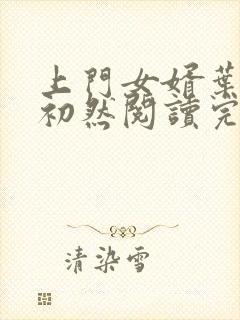 上門女婿葉
初然閱讀完
清染雪